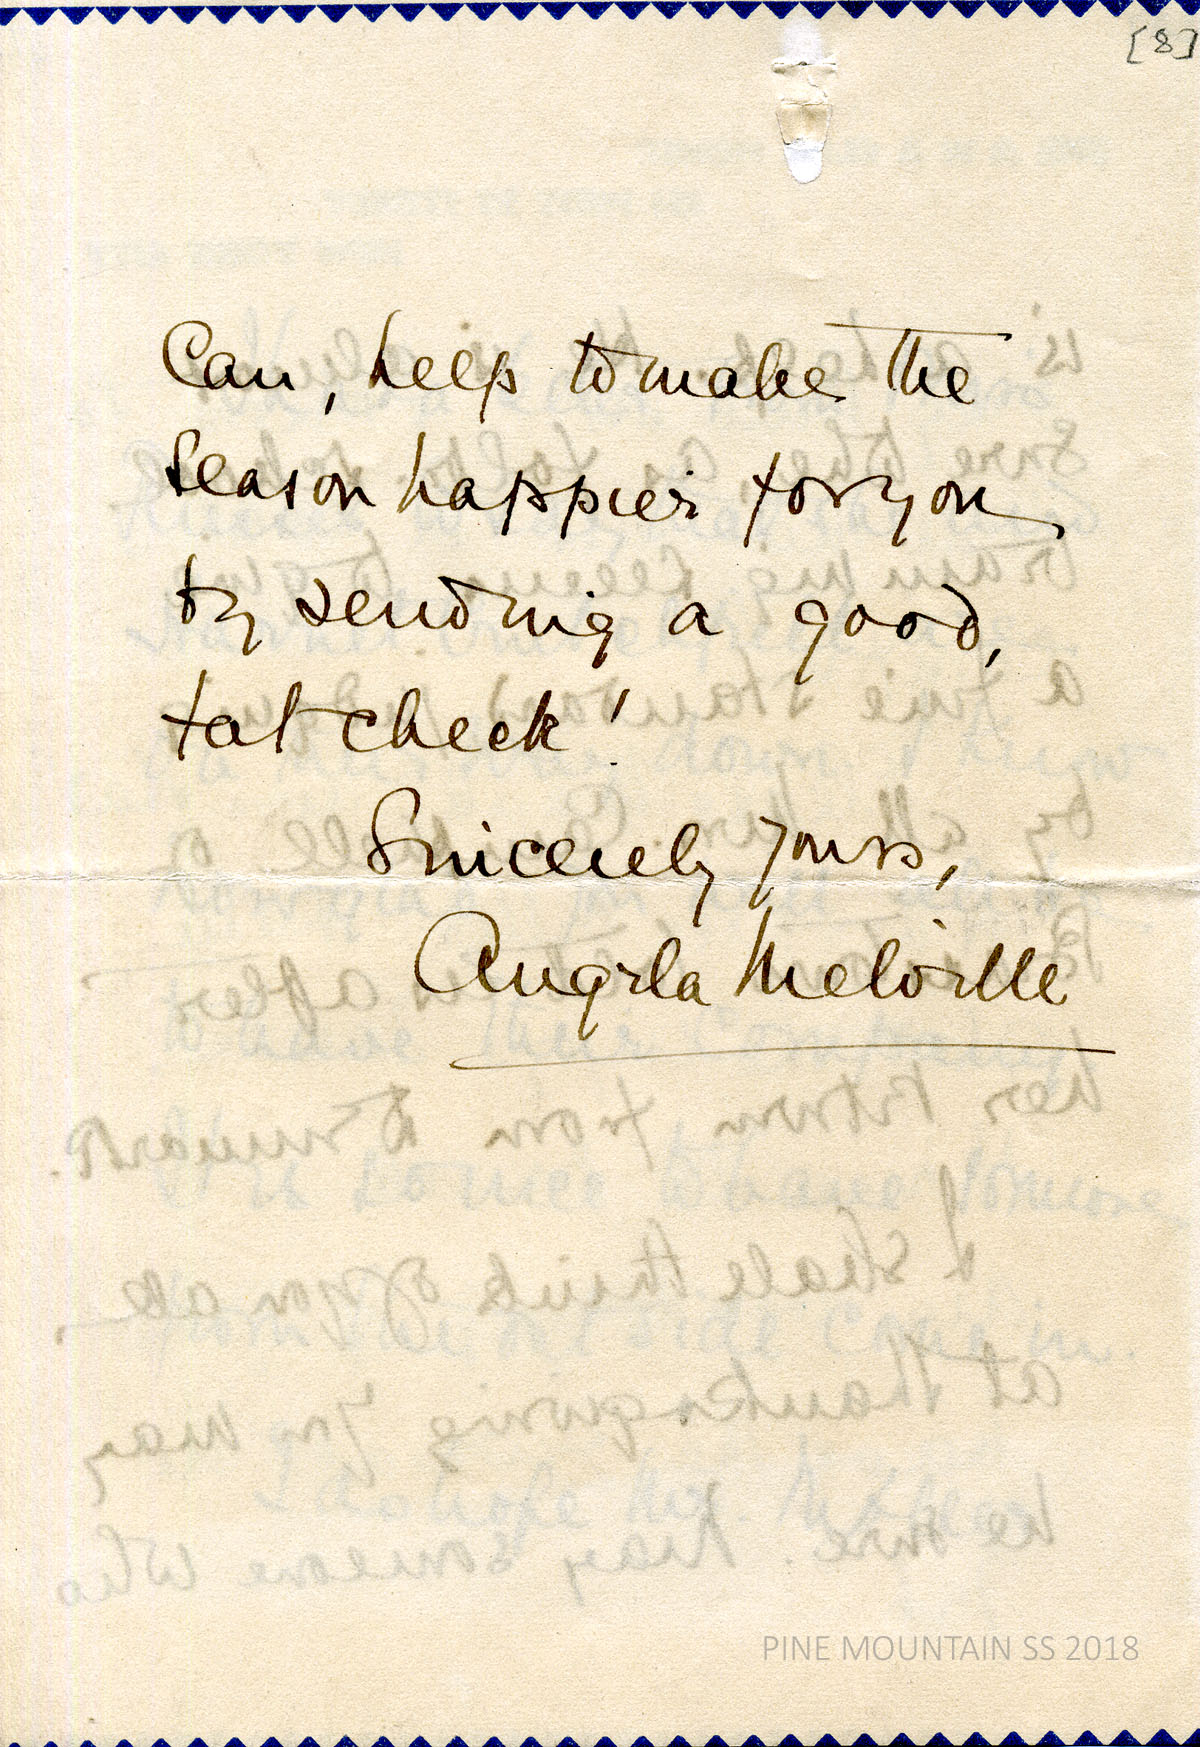 [8]
Can, help to make the
season happier for you
by sending a good,
fat check!
Sincerely yours,
Angela Melville
PINE MOUNTAIN SS 2018